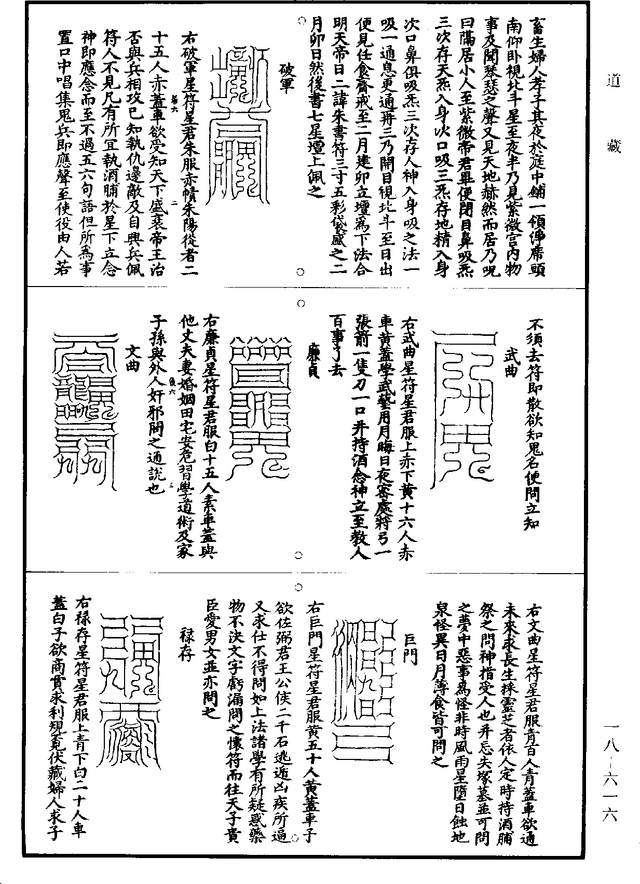 道藏
畜生婦人孝子其夜於庭中鋪一領淨席頭
南仰卧視北斗星至夜半乃見紫微宮內物
事及聞琴瑟之聲又見天地赫然而居乃呪
曰隔居小人至紫微帝君畢便閉目鼻吸炁
三次存天炁入身次口吸三炁存地精入身
次口鼻俱吸炁三次存人神入身吸之法一
吸一通息更通再三乃開目視北斗至日出
便見任食齋戒至二月建卯立壇為下法合
明天帝日二諱朱書符三寸五彩袋盛之二
月卯日然後書七星壇上佩之
破軍
右破軍星符星君朱服赤幘朱陽從者二
十五人赤蓋車欲受知天下盛衰帝王治
否與兵相攻已知執仇邊敵及自興兵佩
符人不見凡有所宜執酒脯於星下立念
神即應念而至不過五六句語但所為事
置口中唱集鬼兵即應聲至使役由人若
不須去符即散欲知鬼名便問立知
武曲
右武曲星符星君服上赤下黃十六人赤
車黃蓋學武藝用月晦日夜密處將弓一
張箭一隻刀一口并持酒念神立至教人
百事了去
廉貞
右廉貞星符星君服白十五人素車蓋與
他丈夫妻婚姻田宅安危習學道術及家
子孫與外人奸邪問之通說也
文曲
右文曲星符星君服青百人青蓋車欲通
未來求長生採靈芝者依人定時持酒脯
祭之問神指受人也并忘失塚墓並可問
之夢中惡事為怪非時風雨星墮日蝕地
泉怪異日月薄食皆可問之
巨門
右巨門星符星君服黃五十人黃蓋車子
欲佐弼君王公侯二千石逃遁凶疾所逼
又求仕不得問如上法諸學有所疑惑藥
物不決文字虧漏問之懷符而往天子貴
臣愛男女並亦問之
祿存
右祿存星符星君服上青下白二十人車
蓋白子欲商賈求利覓伏藏婦人求子
一八—六一六